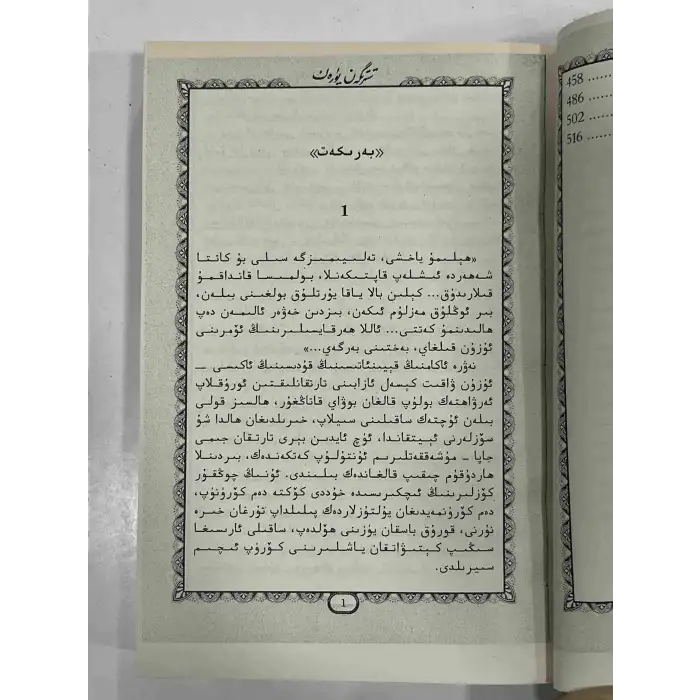 تىترىگەن يۈرەك
«بەرىكەت»
1
«ھېلىمۇ ياخشى، تەلىيىمىزگە سىلى بۇ كاتتا
شەھەردە ئىشلەپ قاپتىكەنلا، بولمىسا قانداقمۇ
قىلارىدۇق... كېلىن بالا ياقا يۇرتلۇق بولغىنى بىلەن،
بىر ئوڭلۇق مەزلۇم ئىكەن، بىزدىن خەۋەر ئالىمەن دەپ
ھالىدىنمۇ كەتتى... ئاللا ھەرقايسىلىرىنىڭ ئۆمرىنى
ئۇزۇن قىلغاي، بەختىنى بەرگەي...»
نەۋرە ئاكامنىڭ قېيىنئاتىسىنىڭ قۇدىسىنىڭ ئاكىسى ــ
ئۇزۇن ۋاقىت كېسەل ئازابىنى تارتقانلىقتىن ئورۇقلاپ
ئەرۋاھتەك بولۇپ قالغان بوۋاي قاتاڭغۇر، ھالسىز قولى
بىلەن ئۇچتەك ساقىلىنى سىيلاپ، خىرىلدىغان ھالدا شۇ
سۆزلەرنى ئېيتقاندا، ئۈچ ئايدىن بېرى تارتقان جىمى
جاپا ــ مۇشەققەتلىرىم ئۇنتۇلۇپ كەتكەندەك، بىردىنلا
ھاردۇقۇم چىقىپ قالغاندەك بىلىندى. ئۇنىڭ چوڭقۇر
كۆزلىرىنىڭ ئىچكىرىسىدە خۇددى كۆكتە دەم كۆرۈنۈپ،
دەم كۆرۈنمەيدىغان يۇلتۇزلاردەك پىلىلداپ تۇرغان خىرە
نۇرنى، قورۇق باسقان يۈزىنى ھۆلدەپ، ساقىلى ئارىسىغا
سىڭىپ كېتىۋاتقان ياشلىرىنى كۆرۈپ ئىچىم
سىيرىلدى.
1
458 ......
486 ....
502 ....
516 ....